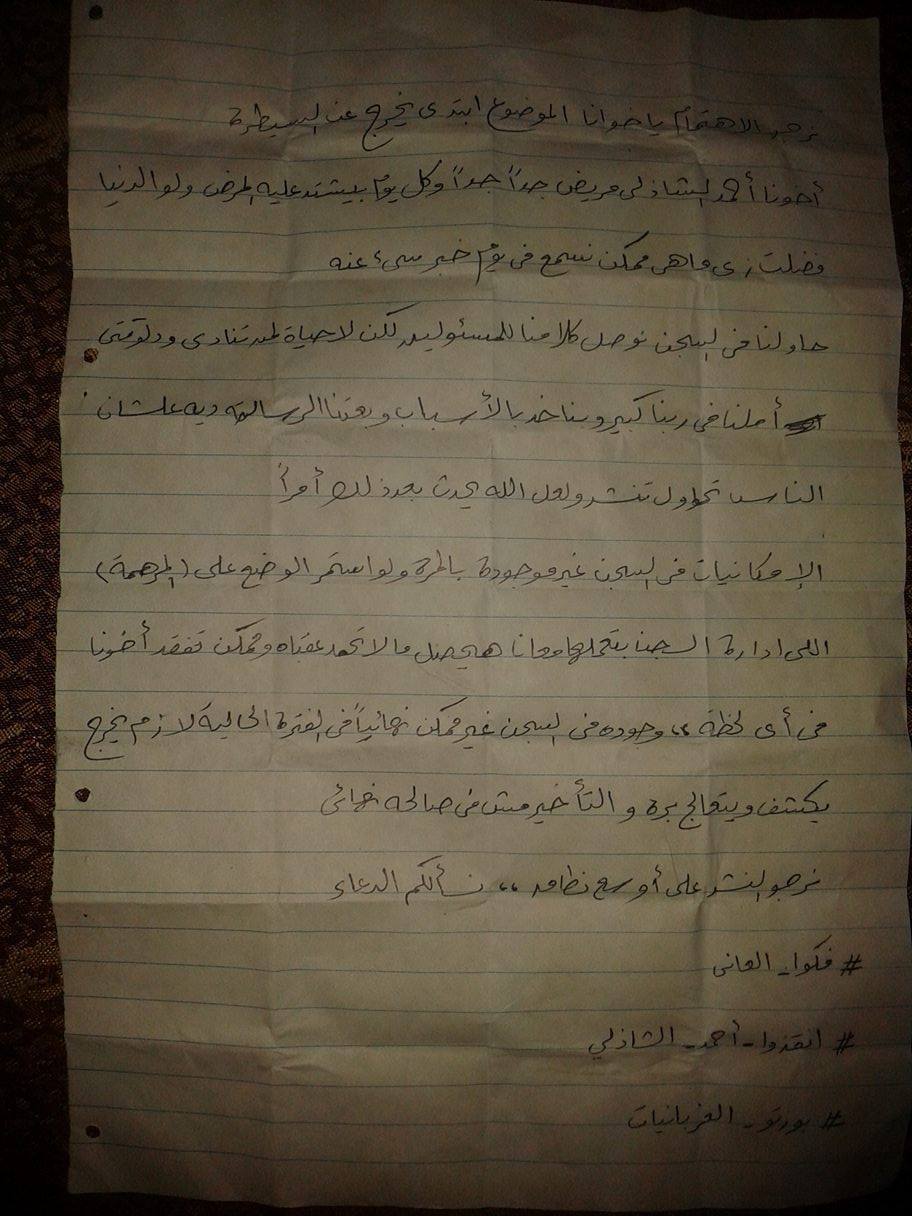 نرجو الاهتمام ياخوانا الموضوع ابتدى يخرج عن السيطرة
أخونا أحمد الشاذلى مريض جداً جداً وكل يوم بيشتد عليه المرض ولو الدنيا
فضلت زى ماهى ممكن نسمع فى يوم خبر سىء عنه
حاولنا فى السجن نوصل كلامنا للمسئولين لكن لا حياة لمن تنادى ودلوقتى
أملنا فى ربنا كبير وبناخد بالأسباب وبعتنا الرسالة ديه علشان
الناس تحاول تنشر ولعل الله يحدث بعد ذلك أمراً
الإمكانيات فى السجن غير موجودة بالمرة ولو استمر الوضع على (المرهمة)
اللى ادارة السجن بتعملها معانا هيحصل مالا تحمد عقباه وممكن نفقد أخونا
فى أى لحظة ،، وجوده فى السجن غير ممكن نهائياً فى الفترة الحالية لازم يخرج
يكشف ويتعالج برة و التأخير مش فى صالحه نهائى
نرجو النشر على أوسع نطاق ،، نسألكم الدعاء
# فكوا_العانى
# انقذوا_أحمد_الشاذلي
# بورتو_الغربانيات